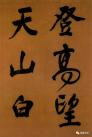 登高望
天山白